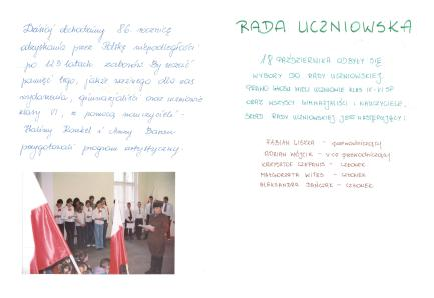 Dzisiaj obchodzimy 86 rocznicę
odzyskania przez Polskę niepodległości
po 123 latach zaborów. By uczcić
pamięć tego, jakże ważnego dla nas
wydarzenia, gimnazjaliści oraz uczniowie
klasy VI, z pomocą nauczycieli -
Haliny i Anny
przygotowali program artystyczny.
RADA UCZNIOWSKA
18 PAŹDZIERNIKA ODBYŁY SIĘ
WYBORY DO RADY UCZNIOWSKIEJ.
PRAWO WYBORU MIELI UCZNIOWIE KLAS IV-VI SP
ORAZ WSZYSCY GIMNAZJALIŚCI I NAUCZYCIELE.
SKŁAD RADY UCZNIOWSKIEJ JEST NASTĘPUJĄCY:
FABIAN LISZKA - przewodniczący
ADRIAN WÓJCIK - v-ce przewodniczący
KRZYSZTOF - CZŁONEK
MAŁGORZATA WITEK - CZŁONEK
ALEKSANDRA - CZŁONEK